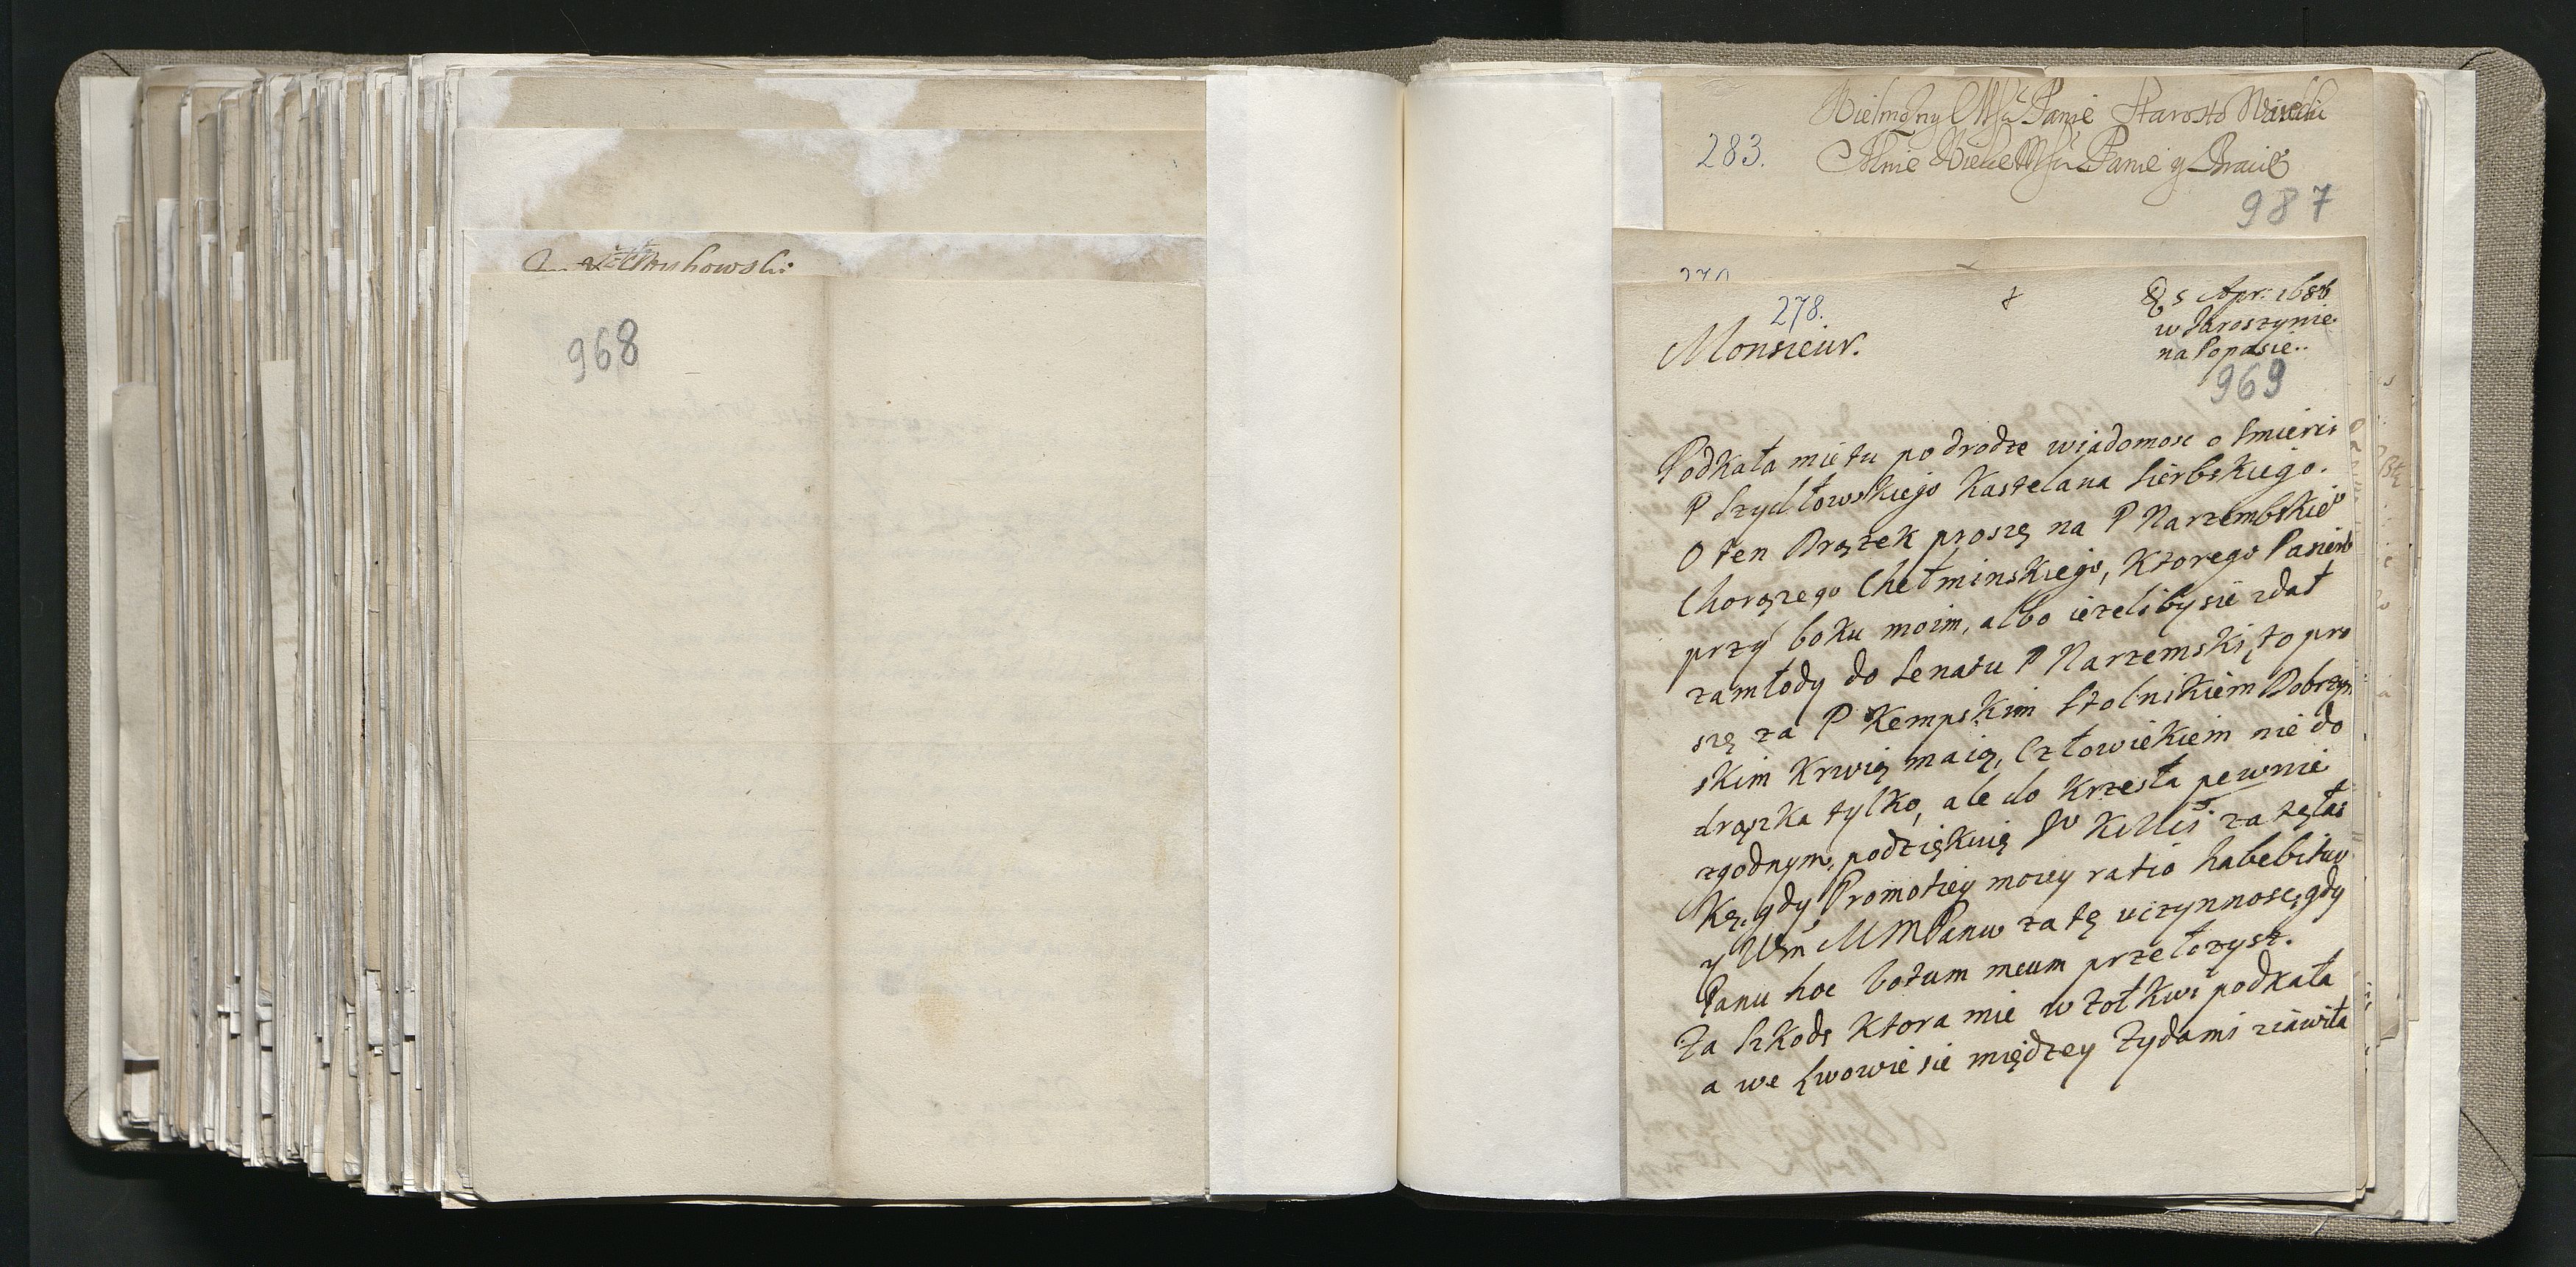 968
283.
Wielmożny Mści Panie Starosto
Mnie Wielce Mści Panie y Bracie
987
278.
5 Apr: 1686
w Jaroszynie
na Popasie..
Monsieur.
969
Podkała mię tu po drodze wiadomosc o smierci
P Szydłowskiego Kasztelana Sierbskiego.
O ten Drązek proszę na P Narzembskie°
Chorązego Chełminskiego, Ktorego Pasierb
przy boku moim, albo iezeliby sie zdał
zamłody do Senatu P Narzemski, to pro
szę za P Kempskim Stolnikiem Dobrzyn
skim Krwią maią, Człowiekiem nie do
drązka tylko, ale do Krzesła pewnie
zgodnym, podziękuię za tę łas
Kę, gdy Promotiey moiey ratio habebitur
y Wm MMPanu za tę uczynnosc, gdy
Panu hoc Votum meum przełozysz.
Za Szkodę Ktora mie w Zołkwi podkała
a we Lwowie sie między Zydami ziawiła